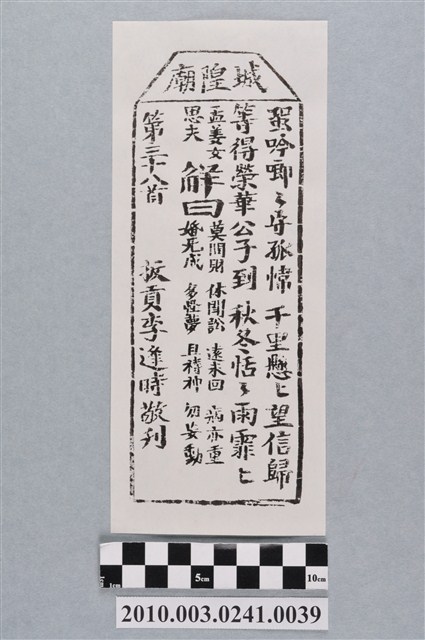 城隍廟
蛩吟唧〻守孤幃 千里懸〻望信歸
等得榮華公子到 秋冬恬〻雨霏〻
孟姜女
思夫
解曰
莫問財 休問訟 遠未回 病亦重
婚死成 多怪夢 且待神 勿妄動
第三十八首 拔貢李逢時敬刋
1cm 5cm 10cm
2010.003.0241.0039